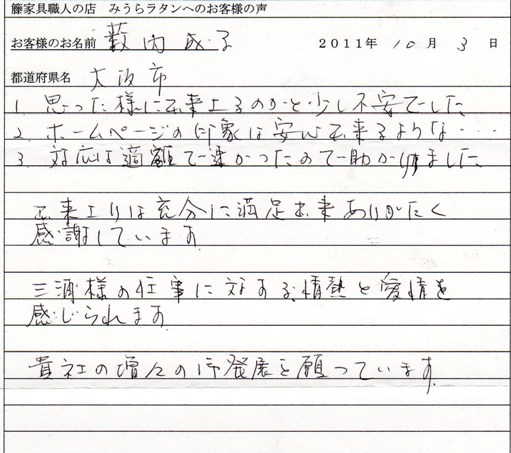 籐家具職人の店 みうらラタンへのお客様の声
お客様のお名前 薮内成子 2011年 10月 3日
都道府県名 大阪市
1. 思った様に出来上るのかと少し不安でした
2. ホームページの印象は安心出来るような・・・
3. 対応は適確で速かったので助かりました
出来上りは充分に満足出来ありがたく
感謝しています
三浦様の仕事に対する情熱と愛情を
感じられます
貴社の増々の御発展を願っています